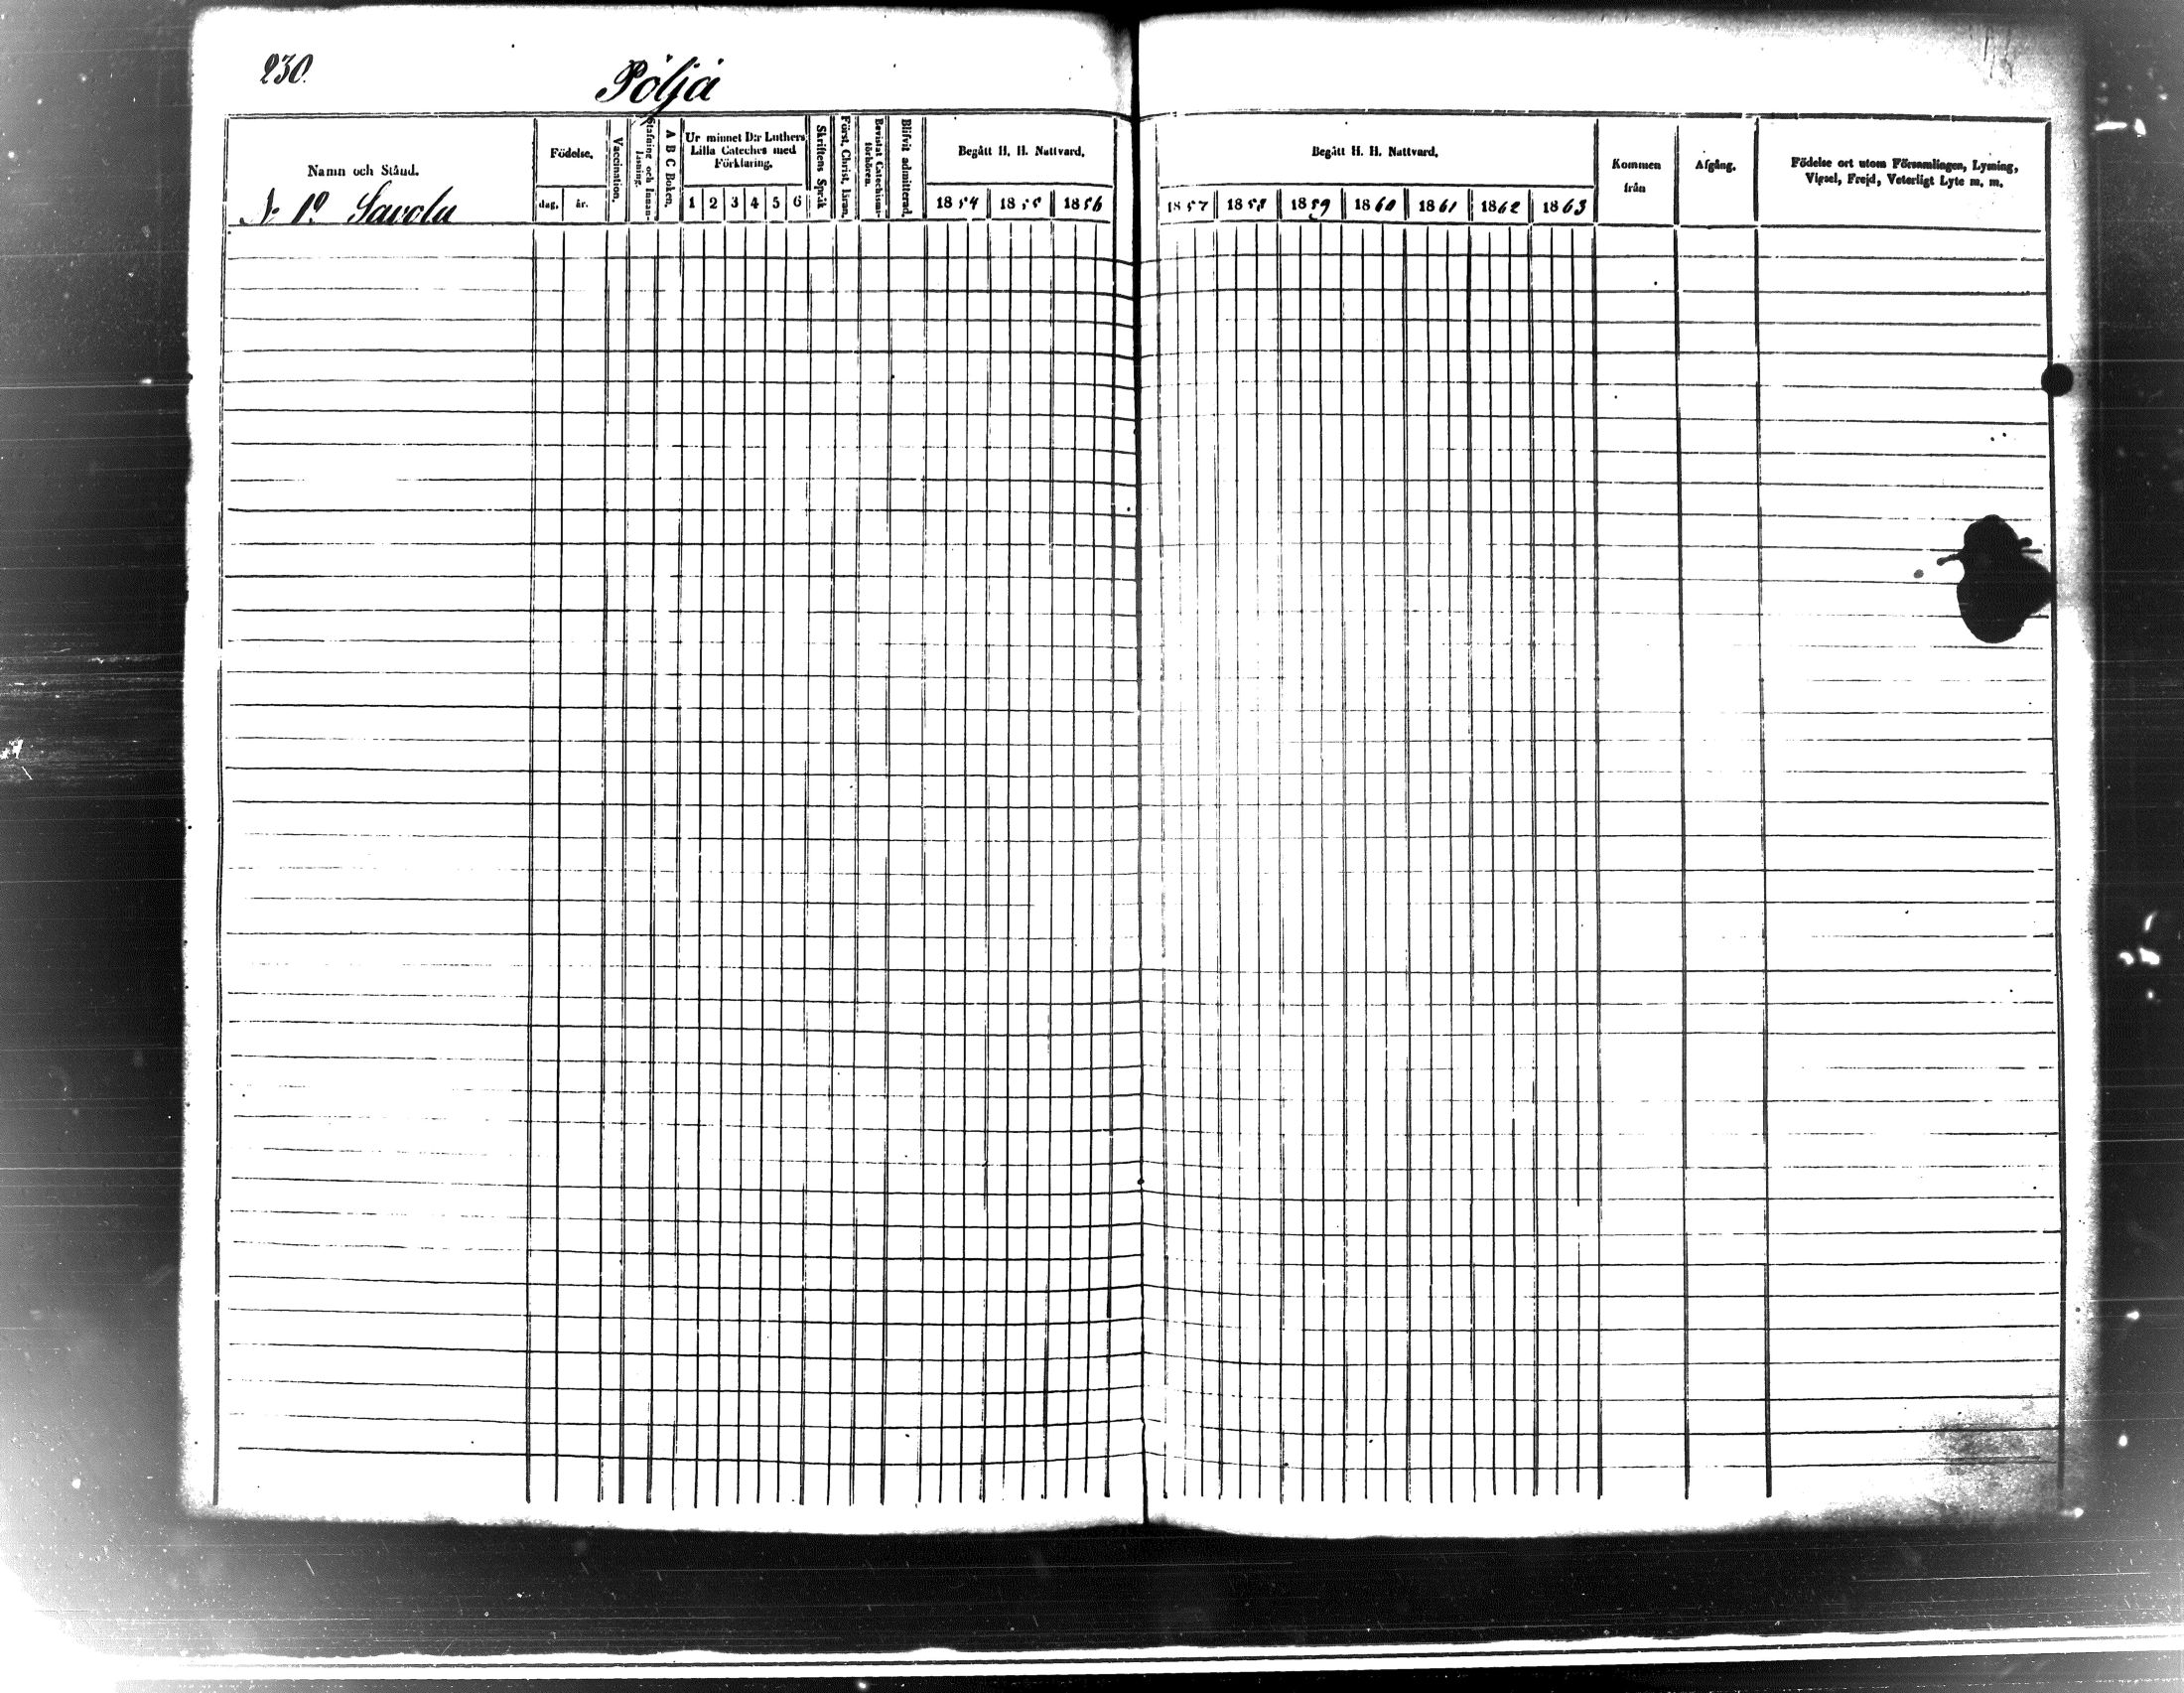 230.
Pöljä
Namn och Stånd.
N: 1º Savola
Födelse.
dag.
år.
Vaccination.
Stafning och Innanläsning.
A B C Boken.
Ur minnet D:r Luthers
Lilla Cateches med
Förklaring.
1 2 3 4 5 6
Skriftens Språk
Först. Christ. läran.
Bevistat Catechismi-förhören.
Blifvit admitterad.
Begått H. H. Nattvard.
1854 1855 1856
Begått H. H. Nattvard.
1857 1858 1859 1860 1861 1862 1863
Kommen
från
Afgång.
Födelse ort utom Församlingen, Lysning,
Vigsel, Frejd, Veterligt Lyte m. m.